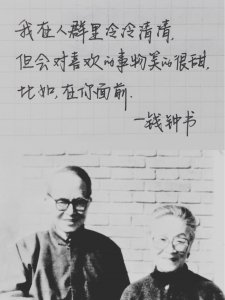 我在人群里冷冷清清,
但会对喜欢的事物笑的很甜.
比如,在你面前.
—钱钟书